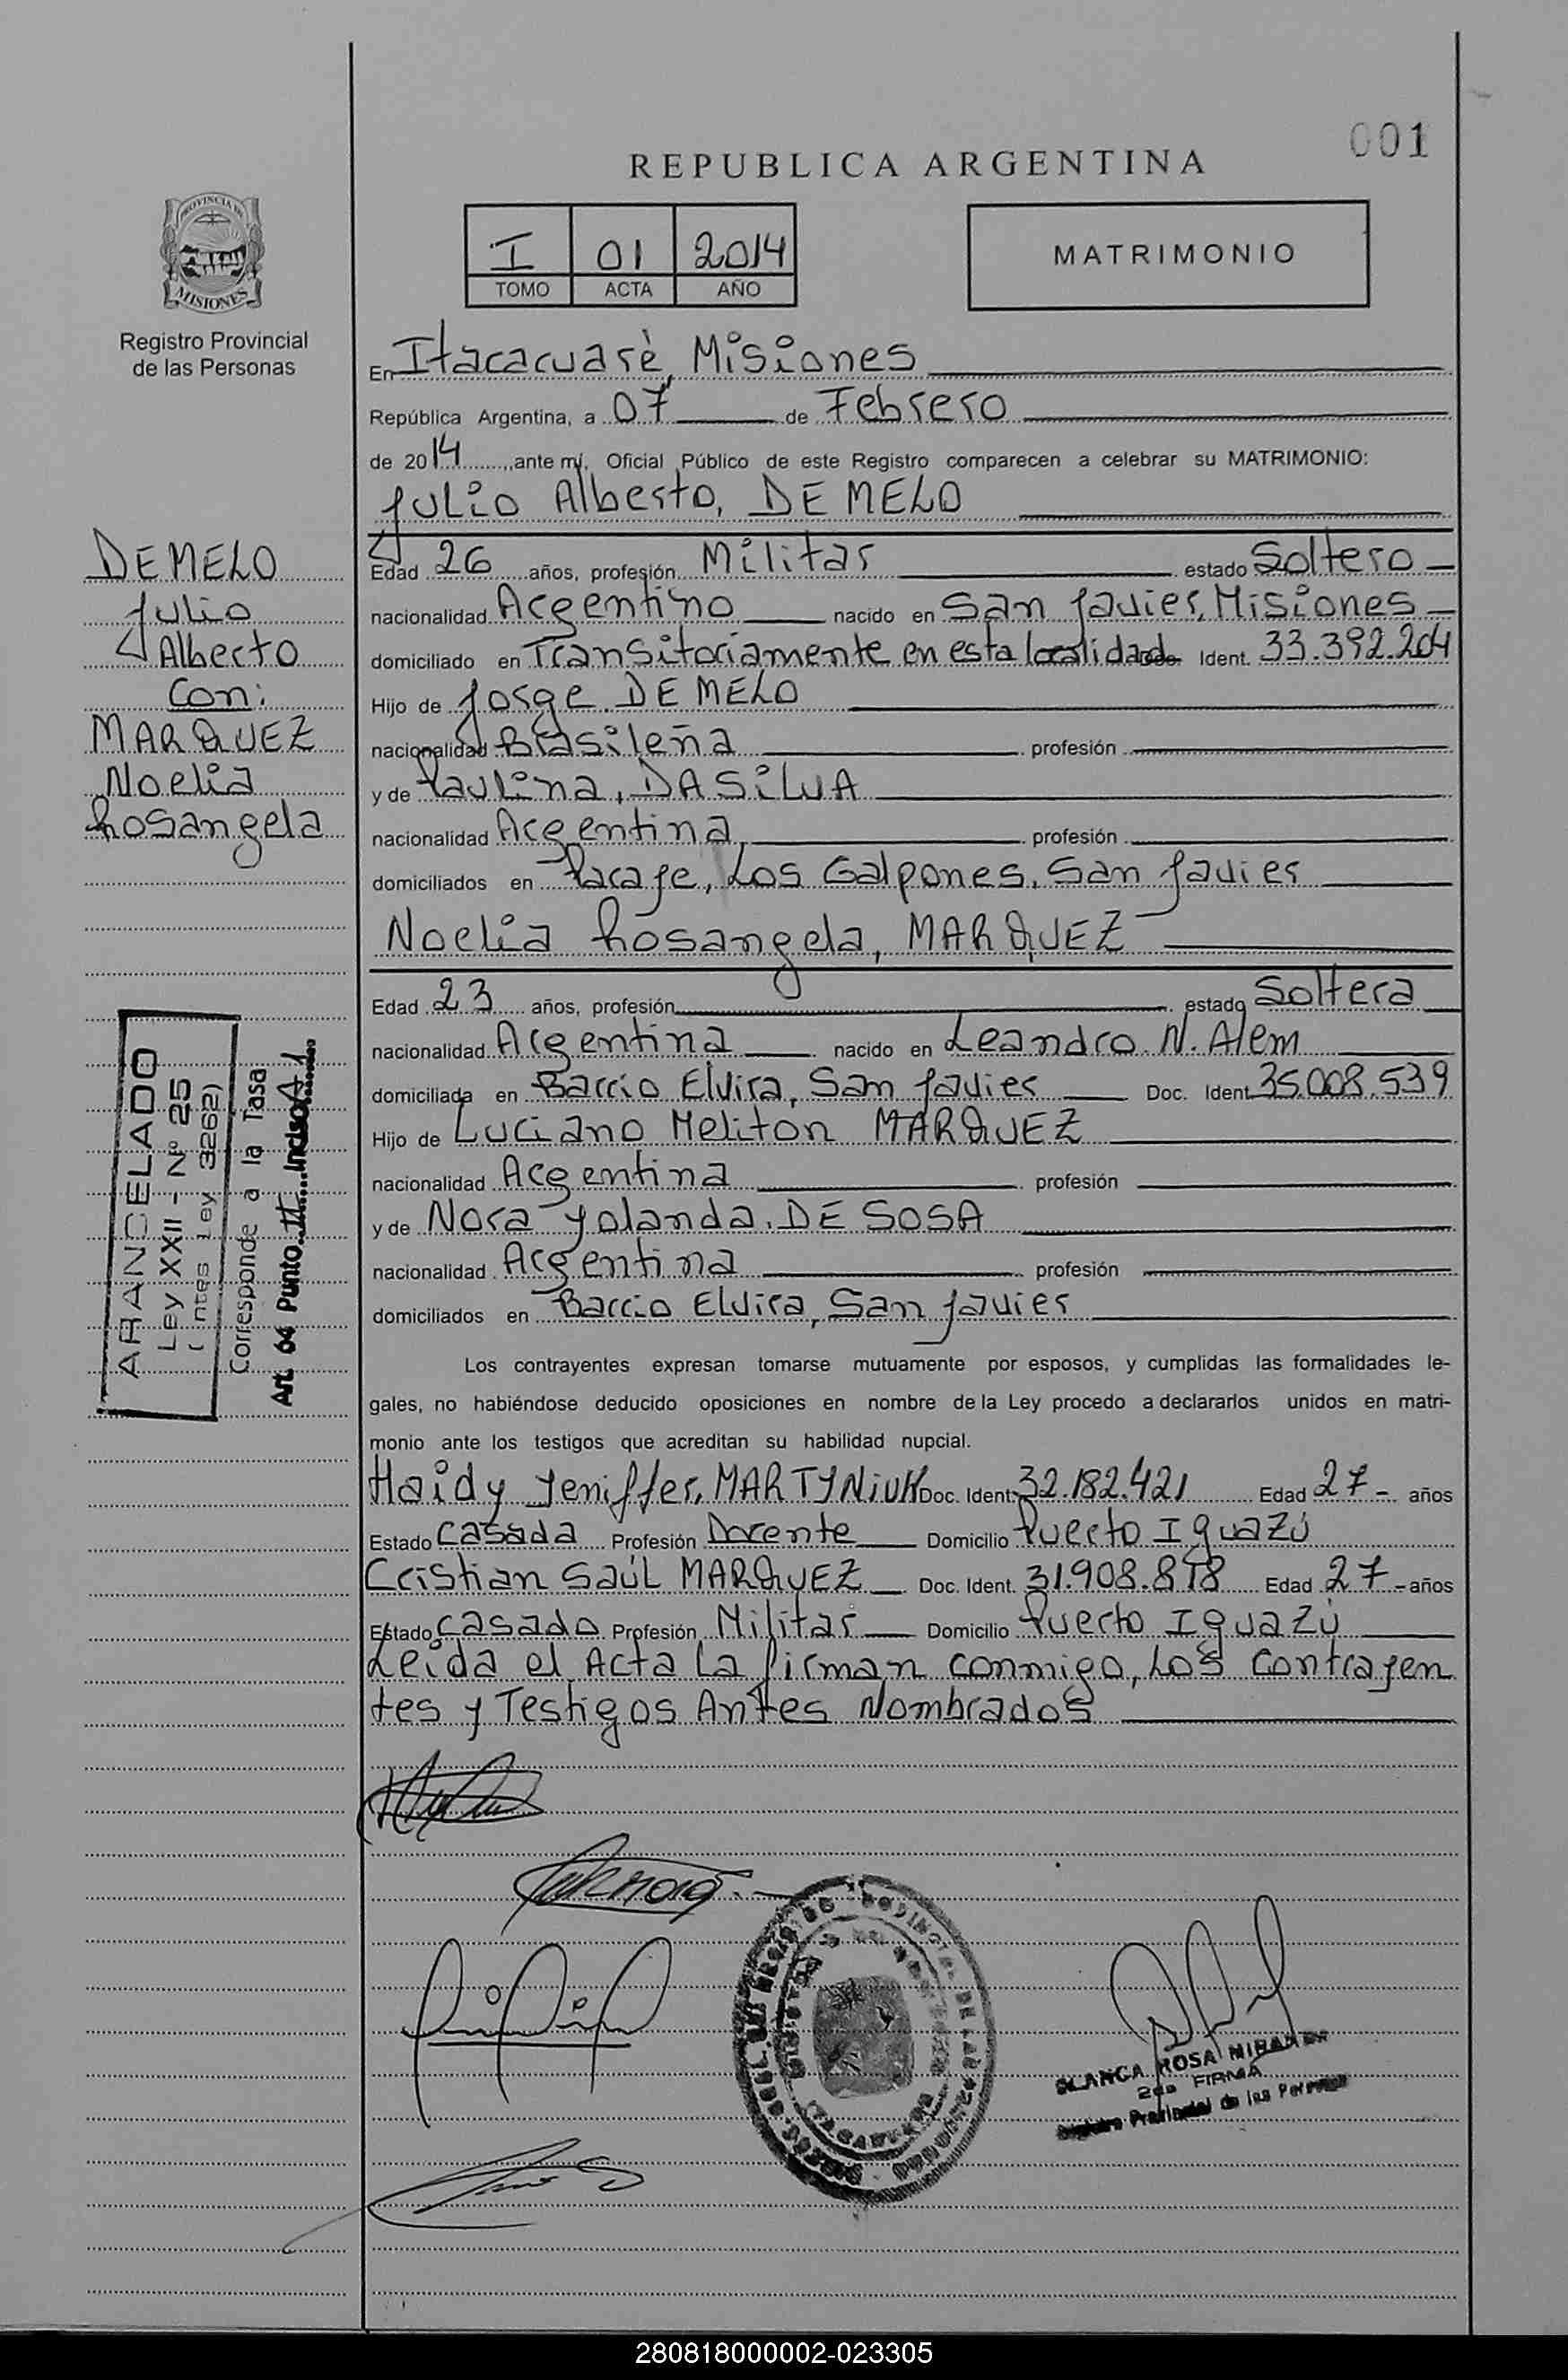 001
REPUBLICA ARGENTINA
PROVINCIA DE
MISIONES
Registro Provincial
de las Personas
I 01 2014
TOMO ACTA AÑO
MATRIMONIO
En Itacacuarè, Misiones
República Argentina, a 07 de Febrero
de 2014, ante mí, Oficial Público de este Registro comparecen a celebrar su MATRIMONIO:
Julio Alberto, DE MELO
Edad 26 años, profesión Militar estado Soltero
nacionalidad Argentino nacido en San Javier, Misiones
domiciliado en Transitoriamente en esta localidad Doc. Ident. 33.392.204
Hijo de Jorge DE MELO
nacionalidad Brasileña profesión
y de Paulina, DA SiLVA
nacionalidad Argentina profesión
domiciliados en Pacaje, Los Galpones, San Javier
Noelia Rosangela, MARQUEZ
Edad 23 años, profesión estado Soltera
nacionalidad Argentina nacido en Leandro N. Alem
domiciliada en Barrio Elvira, San Javier Doc. Ident. 35.008.539
Hijo de Luciano Meliton MARQUEZ
nacionalidad Argentina profesión
y de Nora Yolanda, DE SOSA
nacionalidad Argentina profesión
domiciliados en Barrio Elvira, San Javier
Los contrayentes expresan tomarse mutuamente por esposos, y cumplidas las formalidades le-
gales, no habiéndose deducido oposiciones en nombre de la Ley procedo a declararlos unidos en matri-
monio ante los testigos que acreditan su habilidad nupcial.
Haidy Jeniffer, MARTYNiUK Doc. Ident. 32.182.421 Edad 27 años
Estado Casada Profesión Docente Domicilio Puerto Iguazú
Cristian Saúl MARQUEZ Doc. Ident. 31.908.878 Edad 27 años
Estado Casado Profesión Militar Domicilio Puerto Iguazú
Leida el Acta La firman conmigo, Los Contrayen
tes y Testigos Antes Nombrados
DE MELO
Julio
Alberto
Con:
MARQUEZ
Noelia
Rosangela
ARANCELADO
Ley XXII - Nº 25
(ntes Ley 3262)
Corresponde a la Tasa
Art. 64 Punto II Inciso A1
BLANCA ROSA MIRANDA
2da FIRMA
Registro Provincial de las Personas
280818000002-023305